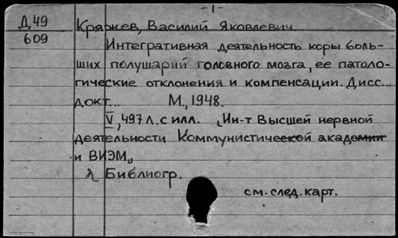 -1-
Д 49 Кряжев, Василий Яковлевич
609 Интегративная деятельность коры боль-
ших полушарий головного мозга, ее патоло-
гические отклонения и компенсации. Дисс...
докт... М., 1948.
V, 497 л. с илл. (Ин-т Высшей нервной
деятельности Коммунистической академии
и ВИЭМ)
Я Библиогр.
см. след. карт.